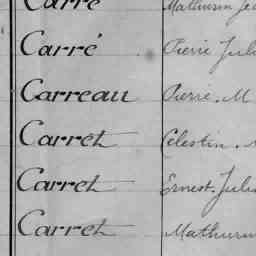 Carré Mathurin Je
Carré Pierre Juli
Carreau Pierre. M
Carret Célestin.
Carret Ernest. Juli
Carret Mathurin